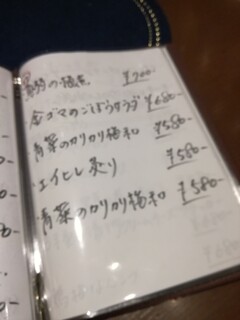 の ¥700-
金ゴマのごぼうサラダ ¥680-
青菜のカリカリ梅和 ¥580-
エイヒレ炙り ¥580-
青菜のカリカリ梅和 ¥580-